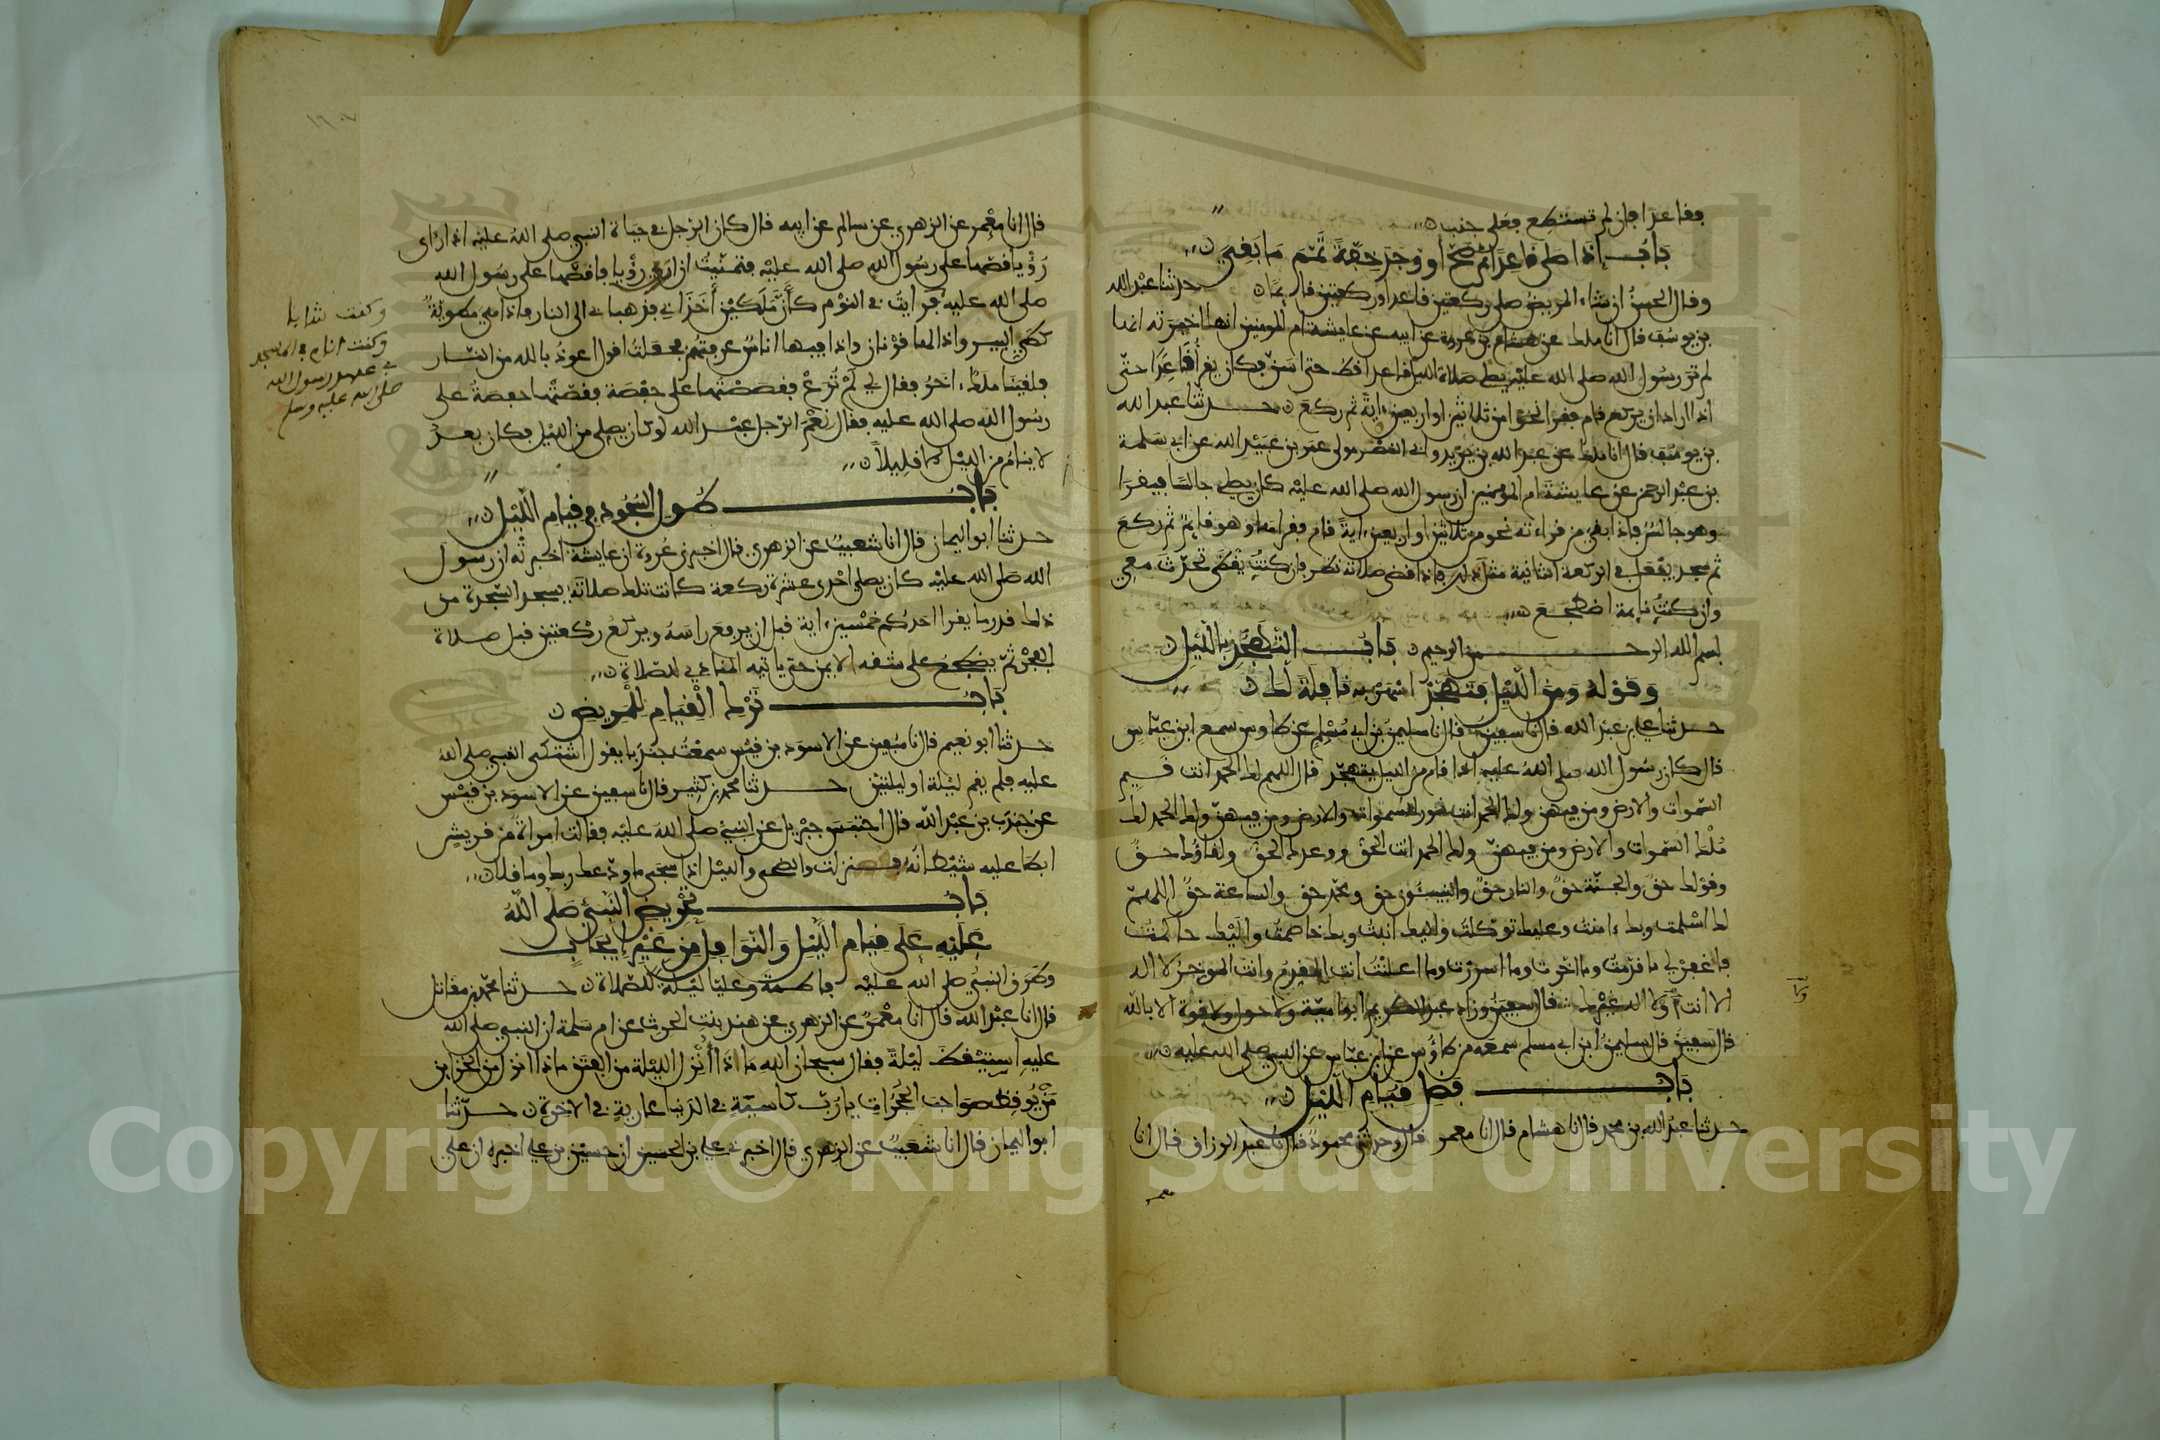 فقاعدا فإن لم تستطع فعلى جنب
باب إذا صلى قاعدا ثم صح أو وجد خفة تمم ما بقي
وقال الحسن إن شاء المريض صلى ركعتين قاعدا وركعتين قائما حدثنا عبد الله
بن يوسف قال أنا ملك عن هشام بن عروة عن أبيه عن عايشة أم المومنين أنها أخبرته أنها
لم تر رسول الله صلى الله عليه يصلي صلاة الليل قاعدا قط حتى أسن فكان يقرأ قاعدا حتى
إذا أراد أن يركع قام فقرأ نحوا من ثلاثين أو أربعين ءاية ثم ركع حدثنا عبد الله
بن يوسف قال أنا ملك عن عبد الله بن يزيد وأبي النضر مولى عمر بن عبيد الله عن أبي سلمة
بن عبد الرحمن عن عايشة أم المؤمنين أن رسول الله صلى الله عليه كان يصلي جالسا فيقرأ
وهو جالس فإذا بقي من قراءته نحو من ثلاثين أو أربعين ءاية قام فقرأها وهو قايم ثم ركع
ثم سجد يفعل في الركعة الثانية مثل ذلك فإذا قضى صلاته نظر فإن كنت يقظى تحدث معي
وإن كنت نايمة اضطجع
بسم الله الرحمن الرحيم باب التهجد بالليل
وقوله ومن الليل فتهجد اسهر به نافلة لك
حدثنا علي بن عبد الله قال نا سفين قال نا سليمن بن أبي مسلم عن طاوس سمع ابن عباس
قال كان رسول الله صلى الله عليه إذا قام من الليل يتهجد قال اللهم لك الحمد أنت قيم
السموات والارض ومن فيهن ولك الحمد أنت نور السموات والارض ومن فيهن ولك الحمد لك
ملك السموات والارض ومن فيهن ولك الحمد أنت الحق ووعدك الحق ولقاؤك حق
وقولك حق والجنة حق والنار حق والنبيئون حق ومحمد حق والساعة حق اللهم
لك أسلمت وبك ءامنت وعليك توكلت وإليك أنبت وبك خاصمت وإليك حاكمت
فاغفر لي ما قدمت وما أخرت وما أسررت وما أعلنت أنت المقدم وأنت الموخر لا اله
الا أنت أو لا اله غيرك قال سفين وزاد عبد الكريم أبو أمية ولا حول ولا قوة الا بالله
قال سفين قال سليمن ابن أبي مسلم سمعه من طاوس عن ابن عباس عن النبي صلى الله عليه
باب فضل قيام الليل
حدثنا عبد الله بن محمد قال نا هشام قال انا معمر قال وحدثني محمود قال نا عبد الرزاق قال انا
معمر
قال انا معمر عن الزهري عن سالم عن أبيه قال كان الرجل في حياة النبي صلى الله عليه إذا رأى
رؤيا قصها على رسول الله صلى الله عليه فتمنيت أن أرى رؤيا فأقصها على رسول الله
صلى الله عليه فرأيت في النوم كأن ملكين أخذاني فذهبا بي الى النار فإذا هي مطوية
كطي البير وإذا لها قرنان وإذا فيها اناس عرفتهم فجعلت أقول أعوذ بالله من النار
فلقينا ملك ءاخر فقال لي لم ترع فقصصتها على حفصة فقصتها حفصة على
رسول الله صلى الله عليه فقال نعم الرجل عبد الله لو كان يصلي من الليل فكان بعد
لا ينام من الليل إلا قليلا
وكنت شابا
وكنت انام في المسجد
في عهد رسول الله
صلى الله عليه وسلم
باب طول السجود في قيام الليل
حدثنا أبو اليمان قال انا شعيب عن الزهري قال أخبرني عروة أن عايشة أخبرته أن رسول
الله صلى الله عليه كان يصلي احدى عشرة ركعة كانت تلك صلاته يسجد السجدة من
ذلك قدر ما يقرأ أحدكم خمسين ءاية قبل أن يرفع رأسه ويركع ركعتين قبل صلاة
الفجر ثم يضطجع على شقه الايمن حتى يأتيه المنادي للصلاة
باب ترك القيام للمريض
حدثنا أبو نعيم قال نا سفين عن الاسود بن قيس سمعت جندبا يقول اشتكى النبي صلى الله
عليه فلم يقم ليلة أو ليلتين حدثنا محمد بن كثير قال نا سفين عن الاسود بن قيس
عن جندب بن عبد الله قال احتبس جبريل عن النبي صلى الله عليه فقالت امرأة من قريش
ابطأ عليه شيطانه فنزلت والضحى والليل إذا سجى ما ودعك ربك وما قلى
باب تحريض النبي صلى الله
عليه على قيام الليل والنوافل من غير إيجاب
وطرق النبي صلى الله عليه فاطمة وعليا ليلة للصلاة حدثنا محمد بن مقاتل
قال انا عبد الله قال انا معمر عن الزهري عن هند بنت الحرث عن ام سلمة أن النبي صلى الله
عليه استيقظ ليلة فقال سبحان الله ماذا أنزل الليلة من الفتن ماذا انزل من الخزاين
من يوقظ صواحب الحجرات يا رب كاسية في الدنيا عارية في الاخرة حدثنا
ابو اليمان قال انا شعيب عن الزهري قال أخبرني علي بن الحسين أن حسين بن علي أخبره أن علي
Copyright © King Saud University